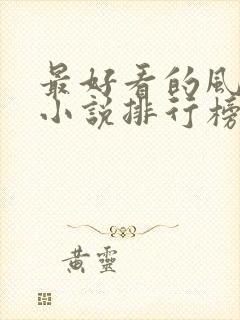 最好看的風
小說排行榜
黃靈